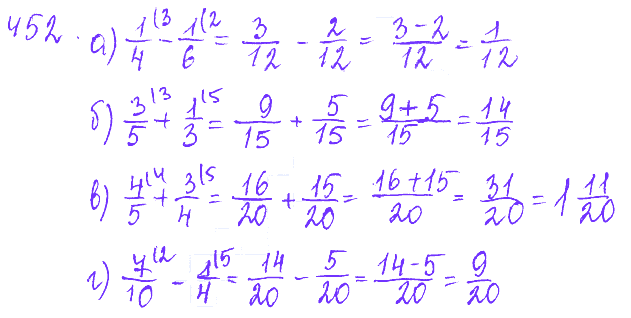 452. а) 1/4 (3 - 1/6 (2 = 3/12 - 2/12 = (3-2)/12 = 1/12
б) 3/5 (3 + 1/3 (5 = 9/15 + 5/15 = (9+5)/15 = 14/15
в) 4/5 (4 + 3/4 (5 = 16/20 + 15/20 = (16+15)/20 = 31/20 = 1 11/20
г) 7/10 (2 - 1/4 (5 = 14/20 - 5/20 = (14-5)/20 = 9/20